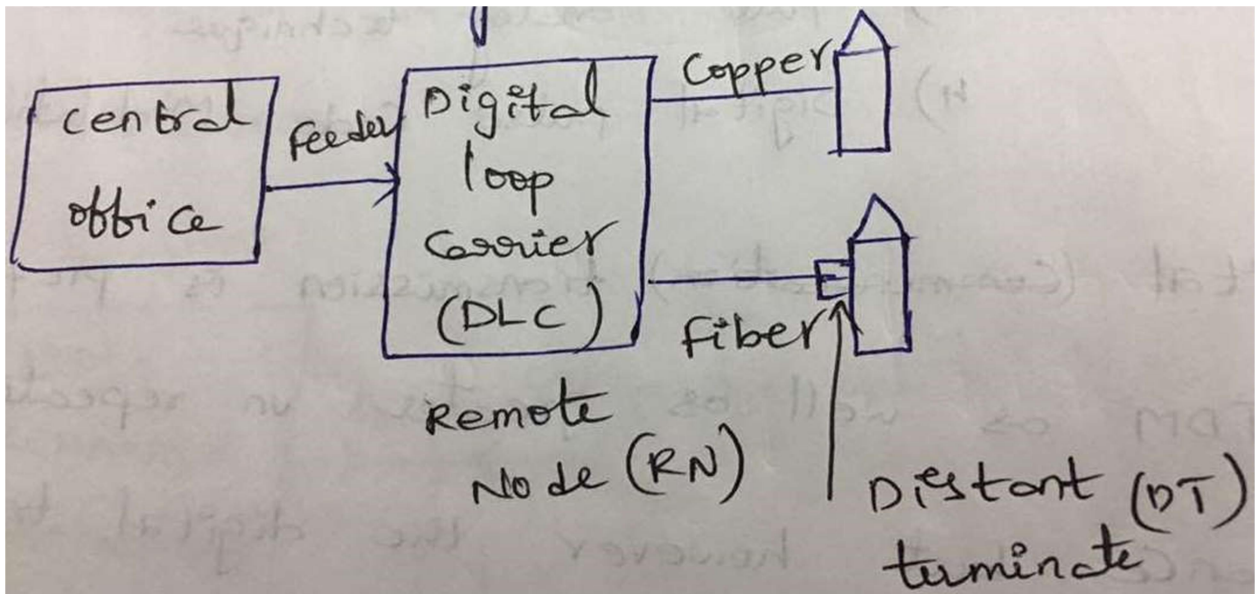 Central
office
Feeder
Digital
loop
Carrier
(DLC)
Copper
Fiber
Remote
Node (RN)
Distant (DT)
terminate